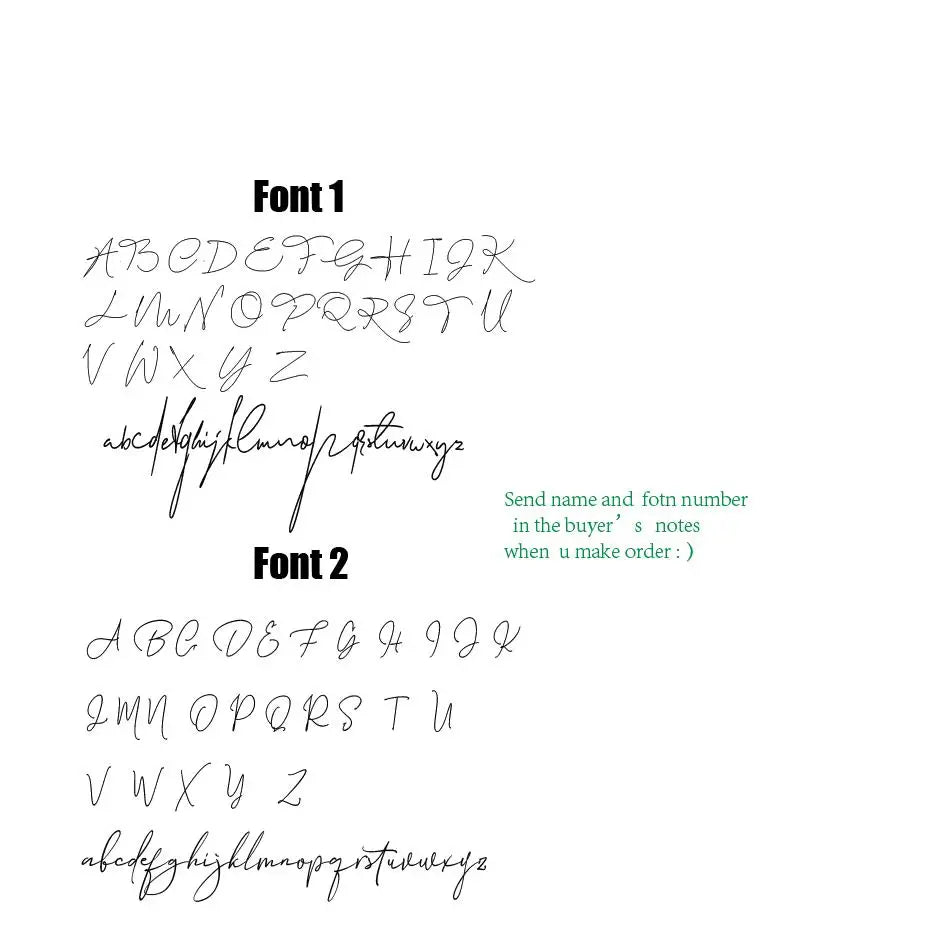 Font 1
ABCDEFGHIJK
LMNOPQRSTU
VWXYZ
abcdefghijklmnopqrstuvwxyz
Send name and fotn number
in the buyer’s notes
when u make order : )
Font 2
ABCDEFGHIJK
LMNOPQRSTU
VWXYZ
abcdefghijklmnopqrstuvwxyz